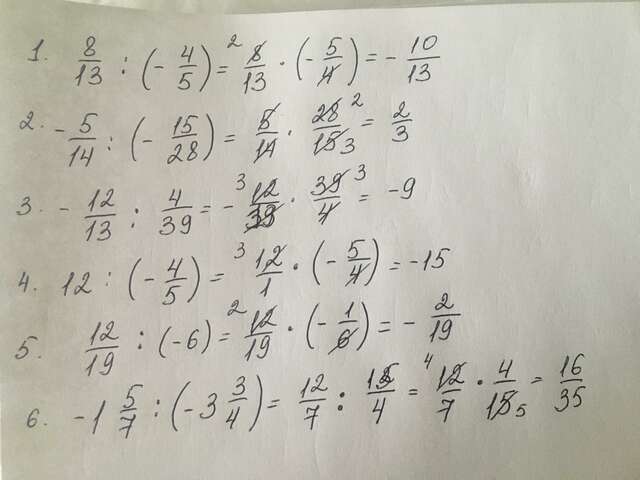 1. 8/13 : (- 4/5) = ² 8/13 · (- 5/4) = - 10/13
2. - 5/14 : (- 15/28) = 5/14 · 28²/15₃ = 2/3
3. - 12/13 : 4/39 = - ³ 12/13 · 39³/4 = -9
4. 12 : (- 4/5) = ³ 12/1 · (- 5/4) = -15
5. 12/19 : (-6) = ² 12/19 · (- 1/6) = - 2/19
6. -1 5/7 : (-3 3/4) = 12/7 : 15/4 = ⁴ 12/7 · 4/15₅ = 16/35